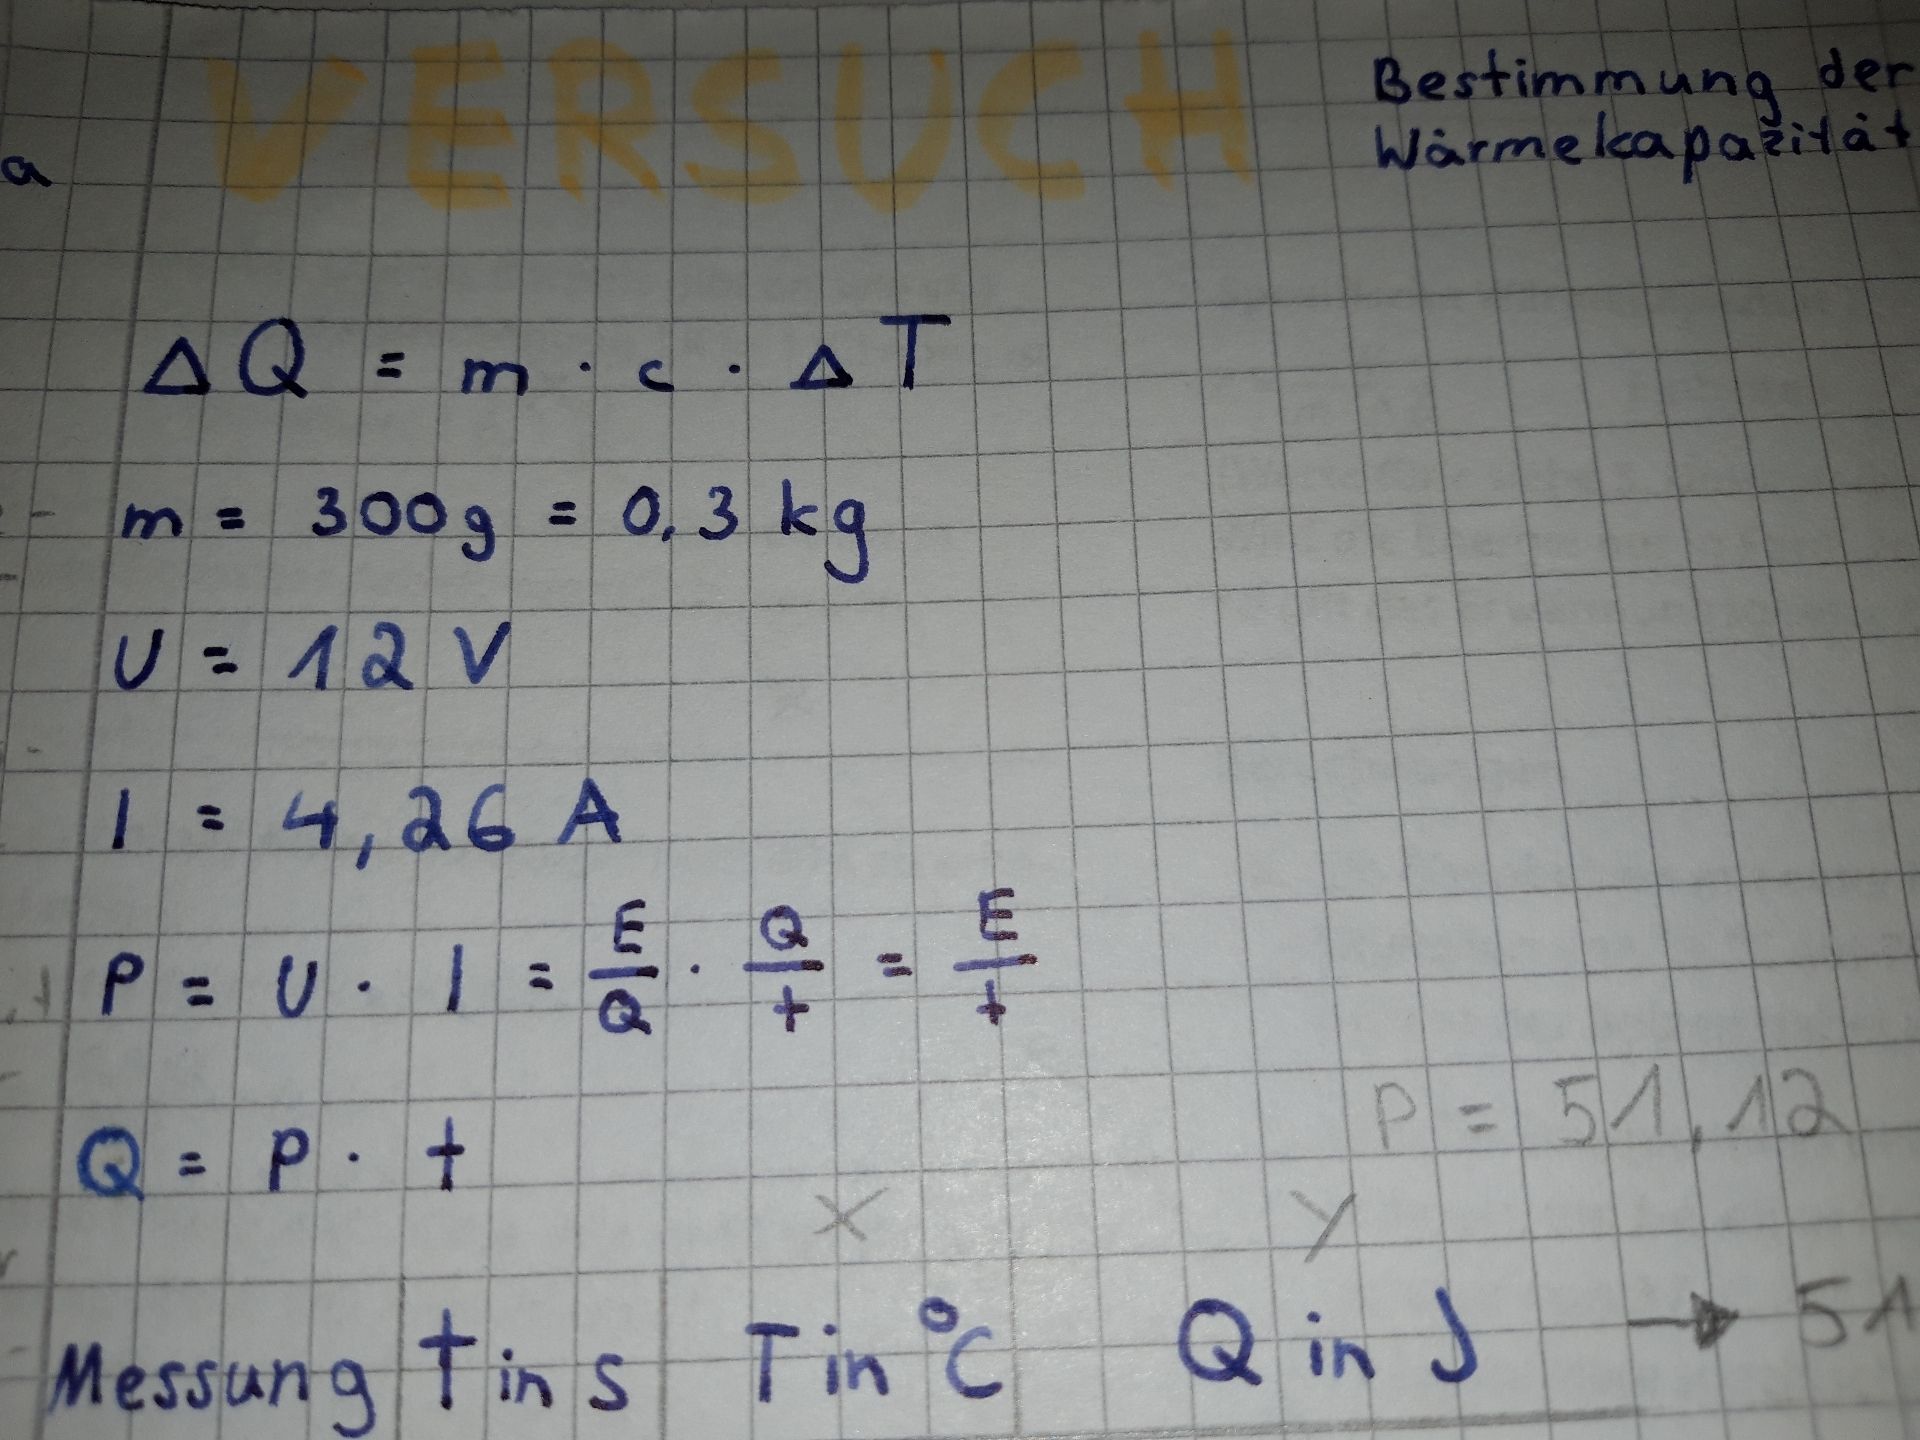 VERSUCH
Bestimmung der
Wärmekapazität
a
ΔQ = m · c · ΔT
m = 300g = 0,3 kg
U = 12 V
I = 4,26 A
P = U · I = E/Q · Q/t = E/t
P = 51,12
Q = P · t
x y
Messung t in s T in °C Q in J → 51